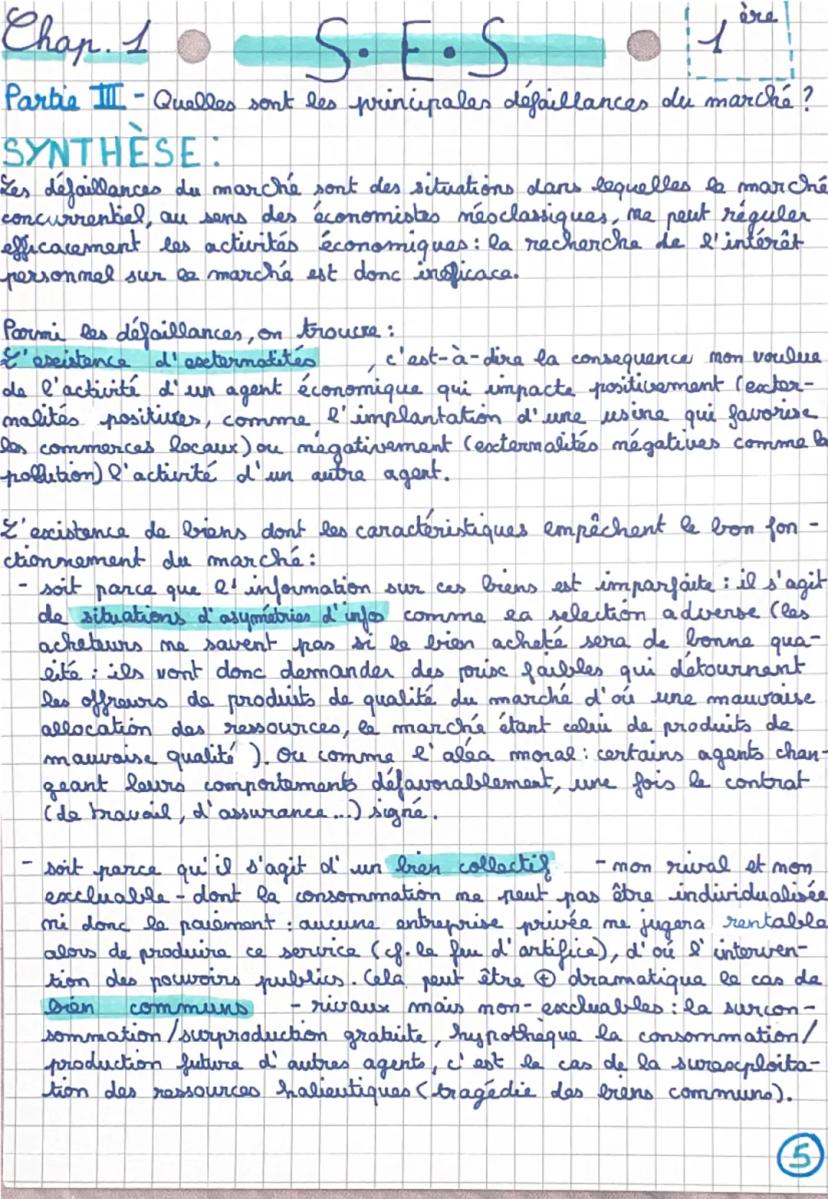 Chap. 1 S.E.S 1ère
Partie III - Quelles sont les principales défaillances du marché ?
SYNTHÈSE :
Les défaillances du marché sont des situations dans lequelles le marché
concurrentiel, au sens des économistes néoclassiques, ne peut réguler
efficacement les activités économiques : la recherche de l'intérêt
personnel sur le marché est donc inefficace.
Parmi les défaillances, on trouve :
L'existence d'externalités , c'est-à-dire la consequence non voulue
de l'activité d'un agent économique qui impacte positivement (exter-
nalités positives, comme l'implantation d'une usine qui favorise
les commerces locaux) ou négativement (externalités négatives comme la
pollution) l'activité d'un autre agent.
L'existence de biens dont les caractéristiques empêchent le bon fon-
ctionnement du marché :
- soit parce que l'information sur ces biens est imparfaite : il s'agit
de situations d'asymétries d'infos comme la selection adverse (les
acheteurs ne savent pas si le bien acheté sera de bonne qua-
lité : ils vont donc demander des prix faibles qui détournent
les offreurs de produits de qualité du marché d'où une mauvaise
allocation des ressources, le marché étant celui de produits de
mauvaise qualité ). Ou comme l'aléa moral : certains agents chan-
geant leurs comportements défavorablement, une fois le contrat
(de travail, d'assurance...) signé.
- soit parce qu'il s'agit d'un bien collectif - non rival et non
excluable - dont la consommation ne peut pas être individualisée
ni donc le paiement : aucune entreprise privée ne jugera rentable
alors de produire ce service (cf. le feu d'artifice), d'où l'interven-
tion des pouvoirs publics. Cela peut être ⊕ dramatique le cas de
bien communs - rivaux mais non-excluables : la surcon-
sommation/surproduction gratuite, hypothèque la consommation/
production future d'autres agents, c'est le cas de la surexploita-
tion des ressources halieutiques (tragédie des biens communs).
5